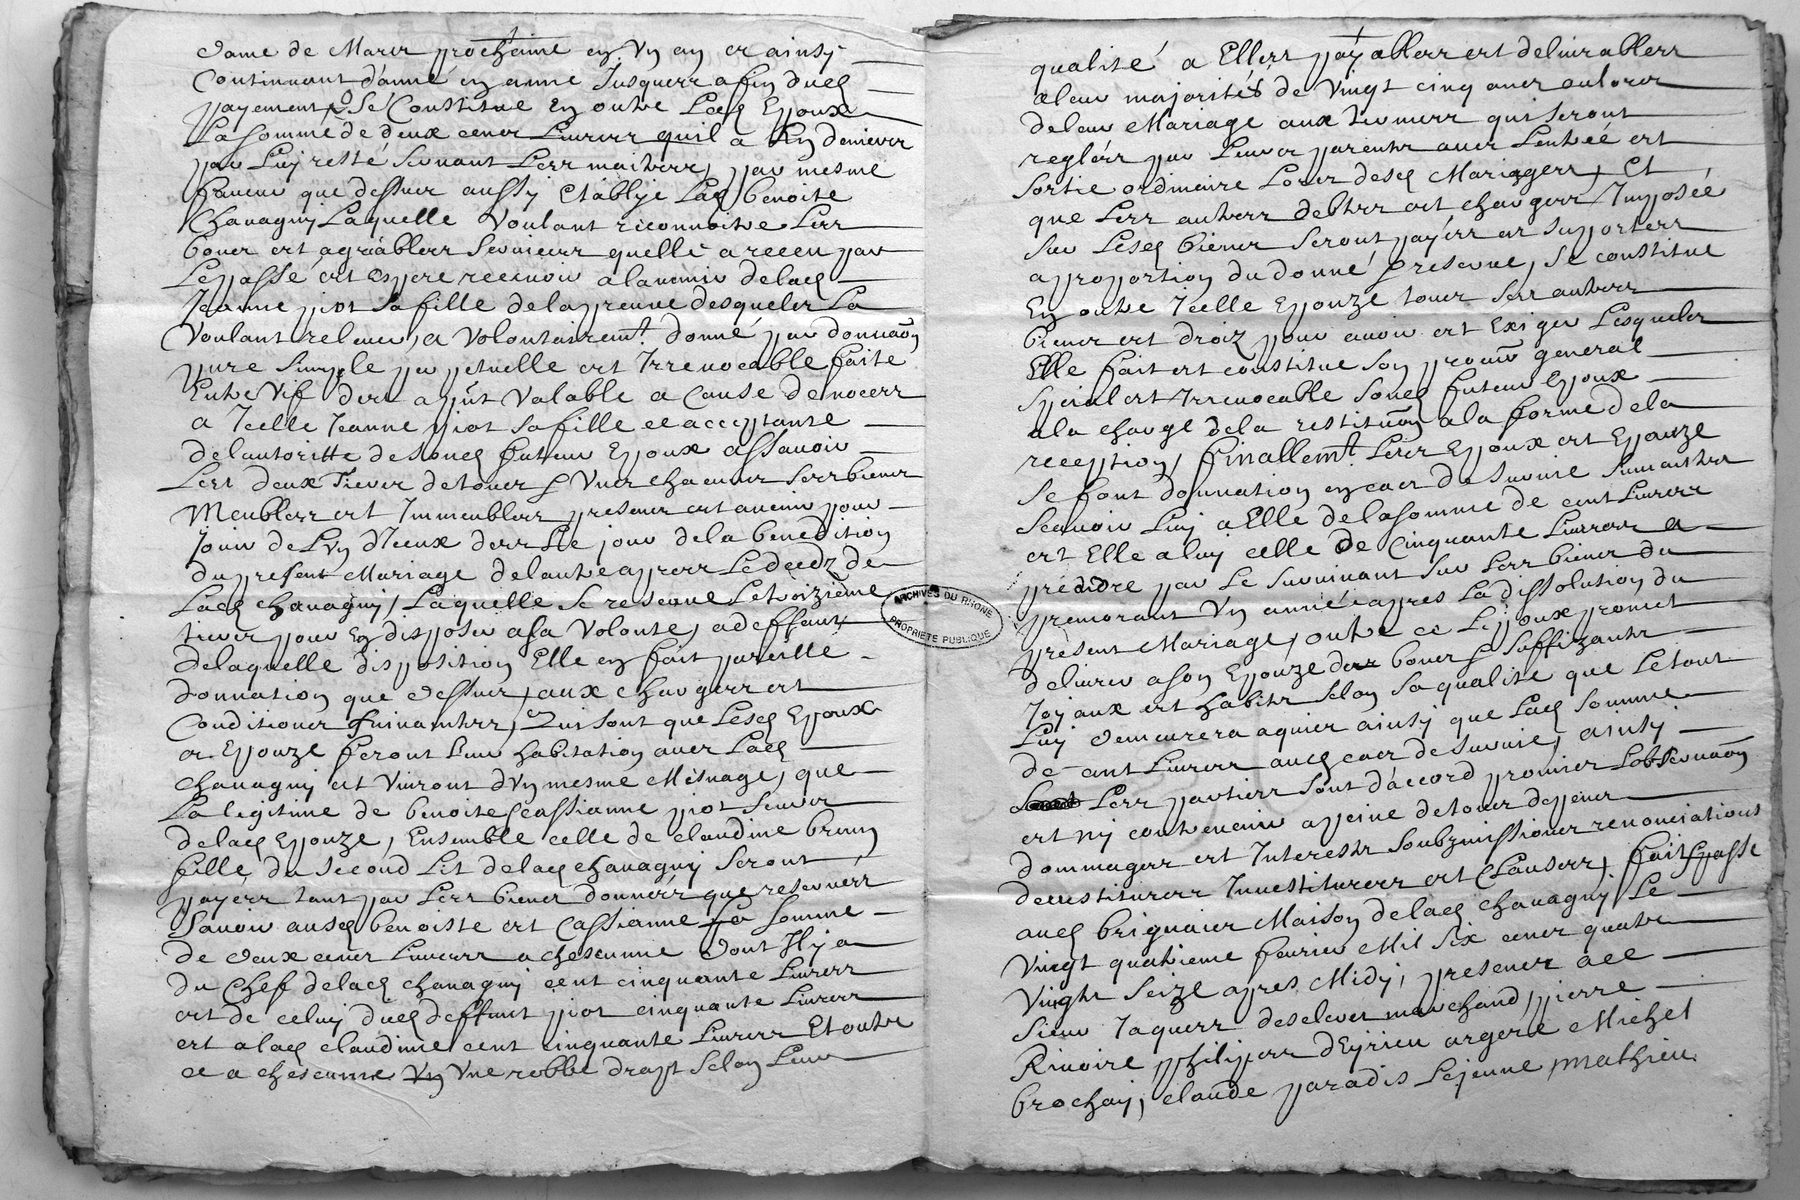 dame de Mars prochaine en Un an et ainsy
Continuant danné en anne Jusques a fin dud
payement, Se Constitue En outre Led Epoux
La somme de deux cens Livres quil a En deniers
par Luy resté suivant Les maitres, par mesme
faveur que dessus aussy Etablye Lad benoite
Chavagny Laquelle Voulant reconnoitre Les
bons et agréables Services quelle a receu par
Lepassé et Espere recevoir alavenir delad
Jeanne piot Sa fille delapreuve desquels La
Voulant relever, a Volontairemt donné par donnaõn
pure Simple perpetuelle et Irrevocable faite
Entre Vif ders apñt Valable a Cause denoces
a Icelle Jeanne piot Safille ce acceptante
delautoritte desoned futeur Epoux assavoir
Les deux Tiers detous & Uns chacuns Ses biens
Meubles et Immeubles presens et avenir pour
Jouir deLun diceux des Le jour dela benedition
dupresent Mariage delautre apres Ledecedz de
Lad Chavagny, Laquelle Se reserve Letroizieme
tiers pour En disposer asa Volonte, adeffaut
delaquelle disposition Elle en fait pareille
donnation que dessus, aux charges et
Conditions suivantes, Qui sont que Lesd Epoux
et Epouze feront Leur habitation avec Lad
chavagny et Vivront dUn mesme Mesnage, que
La legitime de benoite & cassianne piot Seurs
delad Epouze, Ensemble celle de claudine brun
fille du Second Lit delad chavagny Seront
payees tant par Les biens donnés que reservés
Savoir ausd benoiste et Cassianne La Somme
de deux cens Livres a chescune dont Il y a
du Chef delad chavagny cent cinquante Livres
et de celuy dud deffunt piot cinquante Livres
et alad claudine cent cinquante Livres Et outre
ce a chescune Un Une robbe drapt Selon Leur
qualité a Elles payables et delivrables
aleur majorités de Vingt cinq ans oulors
deleur Mariage aux termes qui seront
reglés par Leurs parents avec Lentrée et
Sortie ordinaire Lors desd Mariages, Et
que Les autres debtes et charges Imposée
Sur Lesd biens Seront payés et Suportés
aproportion dudonné & reserve, Se constitue
En outre Icelle Epouze tous ses autres
biens et droiz pour avoir et Exiger Lesquels
Elle fait et constitue Son procur general
Special et Irrevocable Soned futeur Epoux
ala charge dela restituõn ala forme dela
reception, finallemt Lesd Epoux et Epouze
Se font donnation en cas de Survie Suivantes
Scavoir Luy a Elle delasomme de cent Livres
et Elle a luy celle De Cinquante Livres a
prendre par Le Survivant Sur Les biens du
premorant Un année apres La dissolution du
present Mariage, outre ce Lepoux promet
delivrer ason Epouze des bons & Suffizants
Joyaux et habits Selon Sa qualité que Letout
Luy demeurera aquier ainsy que Lad Somme
de cent Livres aud cas de Survie, ainsy
Les parties Sont d'accord promis Lobservaõn
et ny contrevenir apeine detous depens
dommages et Interests Soubzmissions renonciations
devestitures Investitures et Clauses, fait & passé
aud brignais Maison delad chavagny Le
Vingt quatrieme fevrier Mil Six cens quatre
Vinght Seize apres Midy, presens ace
Sieur Jaques deselves marchand, pierre
Rivoire philippes dEyrieu argere Michel
brochay, claude paradis Lejeune, mathieu
ARCHIVES DU RHONE
PROPRIETE PUBLIQUE